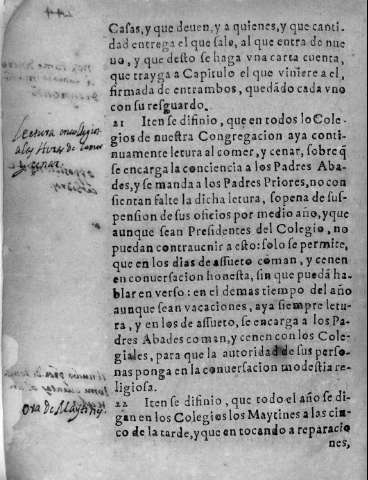 Casas, y que deuen, y a quienes, y que canti-
dad entrega el que sale, al que entra de nue
uo, y que desto se haga vna carta cuenta,
que trayga a Capitulo el que viniere a el,
firmada de entrambos, quedãdo cada vno
con su resguardo.
21 Iten se difinio, que en todos lo Cole-
gios de nuestra Congregacion aya conti-
nuamente letura al comer, y cenar, sobre q̃
se encarga la conciencia a los Padres Aba-
des, y se manda a los Padres Priores, no con
sientan falte la dicha letura, so pena de sus-
pension de sus oficios por medio año, y que
aunque sean Presidentes del Colegio, no
puedan contrauenir a esto: solo se permite,
que en los dias de assueto coman, y cenen
en conuersacion honesta, sin que puedã ha-
blar en verso: en el demas tiempo del año
aunque sean vacaciones, aya siempre letu-
ra, y en los de assueto, se encarga a los Pa-
dres Abades coman, y cenen con los Cole-
giales, para que la autoridad de sus perso-
nas ponga en la conuersacion modestia re-
ligiosa.
22 Iten se difinio, que todo el año se di-
gan en los Colegios los Maytines a las cin-
co de la tarde, y que en tocando a reparacio
nes,
Lectura en colegios
de comer
y cenar.
ora de Maytines